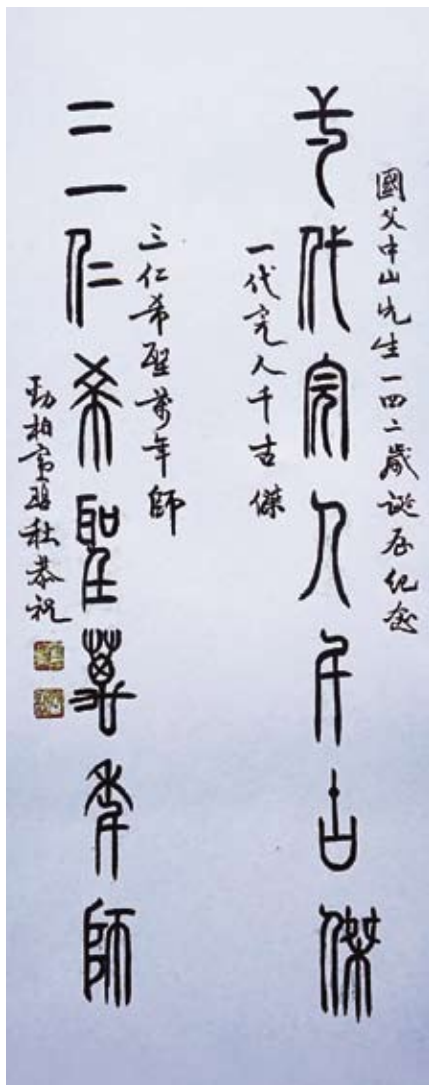 國父中山先生一四二歲誕辰紀念
一代完人千古傑
一代完人千古傑
三仁希聖萬年師
三仁希聖萬年師
勁柏秋恭祝